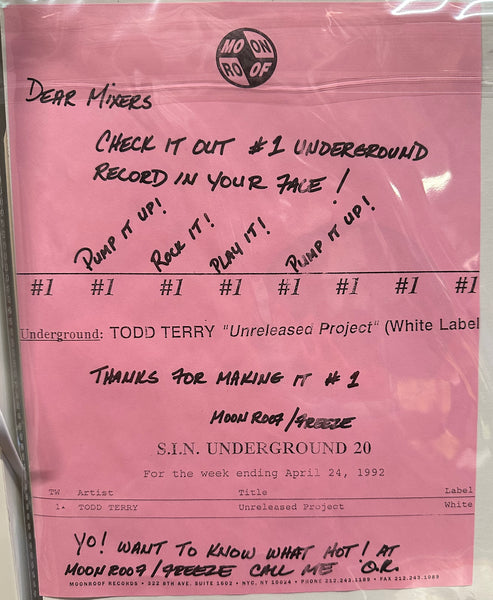 MO ON
RO OF
DEAR MIXERS
CHECK IT OUT #1 UNDERGROUND
RECORD IN YOUR FACE!
PUMP IT UP! ROCK IT! PLAY IT! PUMP IT UP!
#1 #1 #1 #1 #1 #1 #1 #1
Underground: TODD TERRY "Unreleased Project" (White Label
THANKS FOR MAKING IT #1
MOON ROOF/FREEZE
S.I.N. UNDERGROUND 20
For the week ending April 24, 1992
TW Artist Title Label
1. TODD TERRY Unreleased Project White
YO! WANT TO KNOW WHAT HOT! AT
MOONROOF RECORDS • 322 8TH AVE. SUITE 1602 • NYC, NY 10024 • PHONE 212.243.1189 • FAX 212.243.1089
MOON ROOF/FREEZE CALL ME